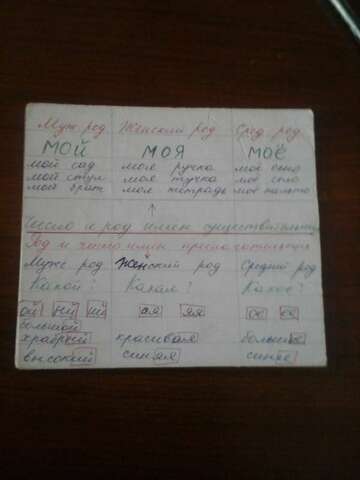 Муж род Женский род Сред. род
МОЙ МОЯ МОЁ
мой сад моя ручка моё окно
мой стул моя тучка моё село
мой брат моя тетрадь моё пальто
Число и род имён существительных
Род и число имён прилагательных
Мужс род Женский род Средний род
Какой? Какая? Какое?
ой ый ий ая яя ое ее
большой
храбрый красивая большое
высокий синяя синее